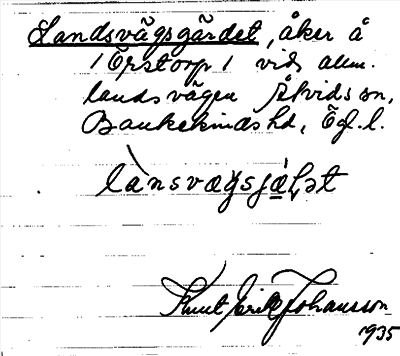 Landsvägsgärdet, åker å
1 Örstorp 1 vid allm.
landsvägen Åtvids sn,
Bankekinds hd, Ög. l.
Knut Erik Johansson
1935